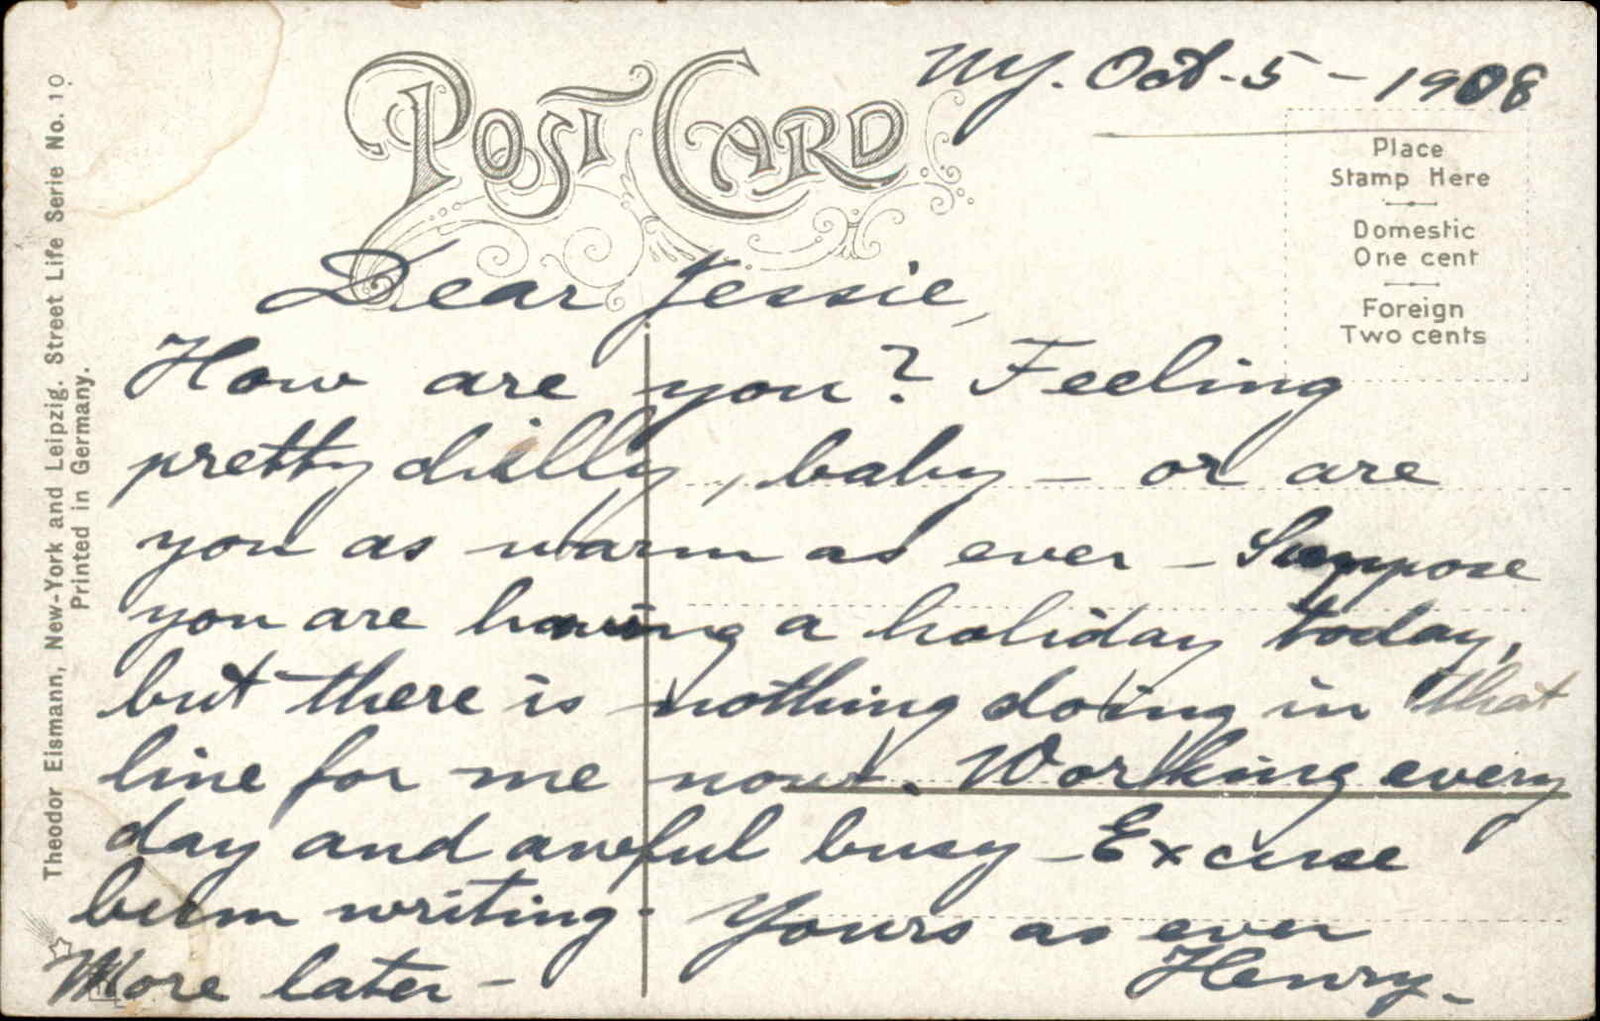 NY. Oct. 5 - 1908
POST CARD
Place
Stamp Here
Domestic
One cent
Foreign
Two cents
Dear Jessie,
How are you? Feeling
pretty chilly, baby - or are
you as warm as ever - Suppose
you are having a holiday today,
but there is nothing doing in that
line for me now. Working every
day and aweful busy - Excuse
bum writing. Yours as ever
Henry.
More later -
Theodor Eismann, New-York and Leipzig. Street Life Serie No. 10
Printed in Germany.